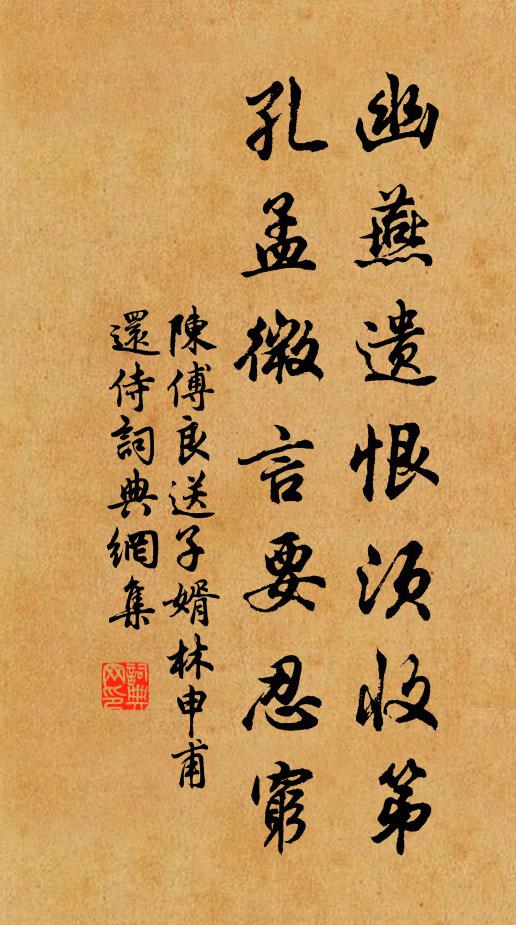 幽燕遗恨须收第
孔孟微言要忍窮
陳傅良送子婿林申甫
還侍詞典網集
詞典网印